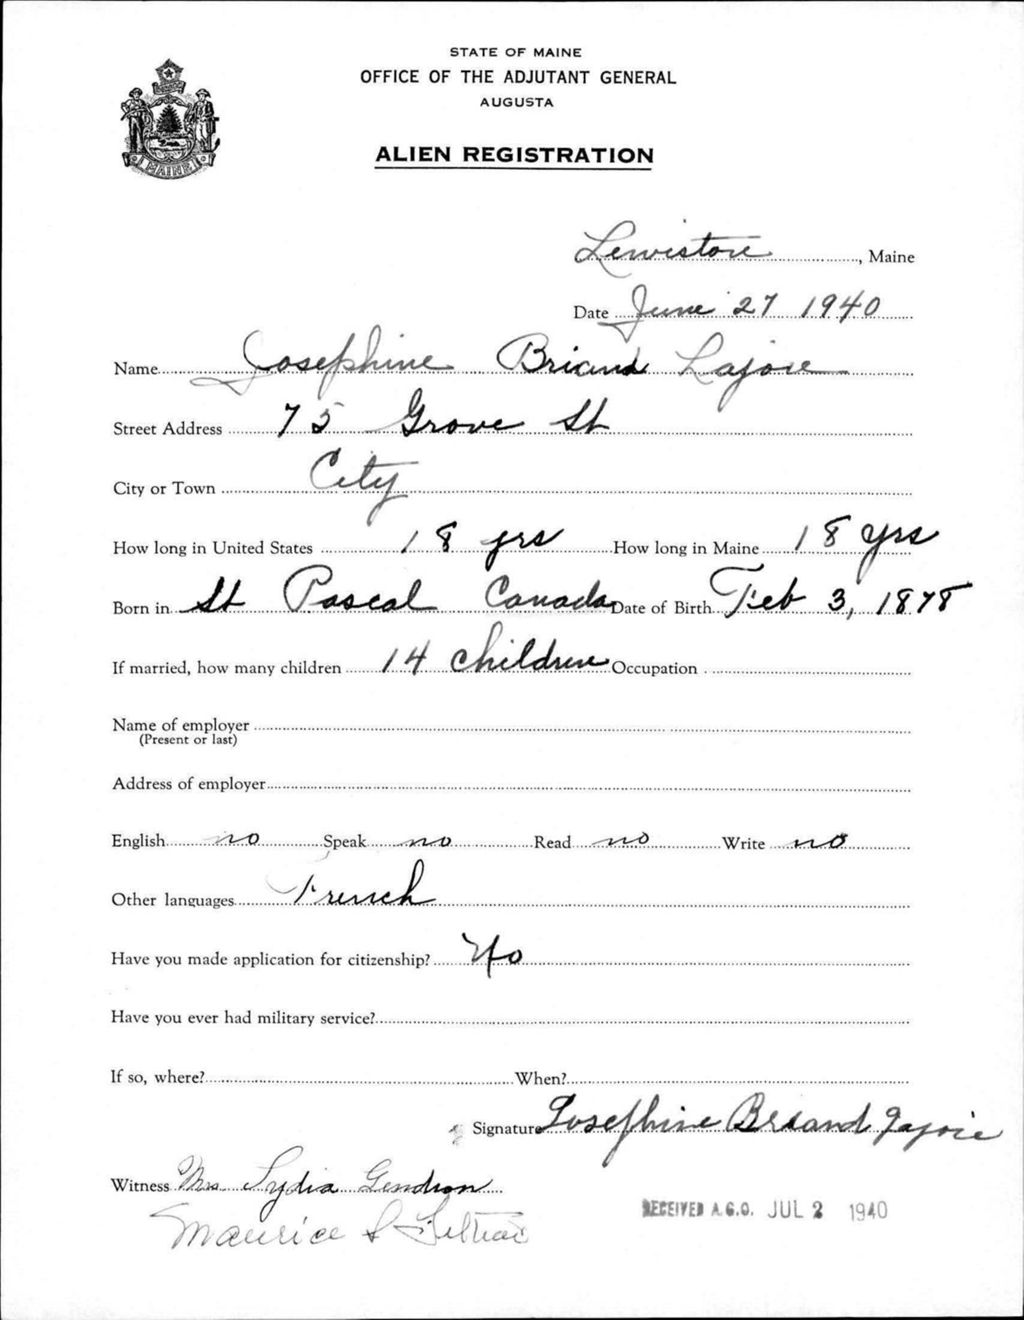 STATE OF MAINE
OFFICE OF THE ADJUTANT GENERAL
AUGUSTA
ALIEN REGISTRATION
MAINE
Lewiston, Maine
Date June 27 1940
Name Josephine Briand Lajoie
Street Address 75 Grove St
City or Town City
How long in United States 18 yrs How long in Maine 18 yrs
Born in St Pascal Canada Date of Birth Feb 3, 1878
If married, how many children 14 children Occupation
Name of employer
(Present or last)
Address of employer
English no Speak no Read no Write no
Other languages French
Have you made application for citizenship? No
Have you ever had military service?
If so, where? When?
Signature Josephine Briand Lajoie
Witness Mrs Lydia Gendron
Maurice
RECEIVED A.G.O. JUL 2 1940